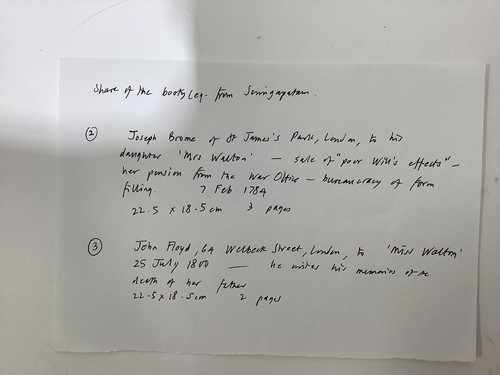 Share of the booty leg. from Seringapatam.
② Joseph Brome of St James's Park, London, to his
daughter 'Mrs Walton' — sale of "poor Will's effects" —
her pension from the War Office — bureaucracy of form
filling. 7 Feb 1784
22.5 x 18.5 cm 3 pages
③ John Floyd, 64 Welbeck Street, London, to 'Miss Walton'
25 July 1800 — he writes his memories of the
death of her father
22.5 x 18.5 cm 2 pages